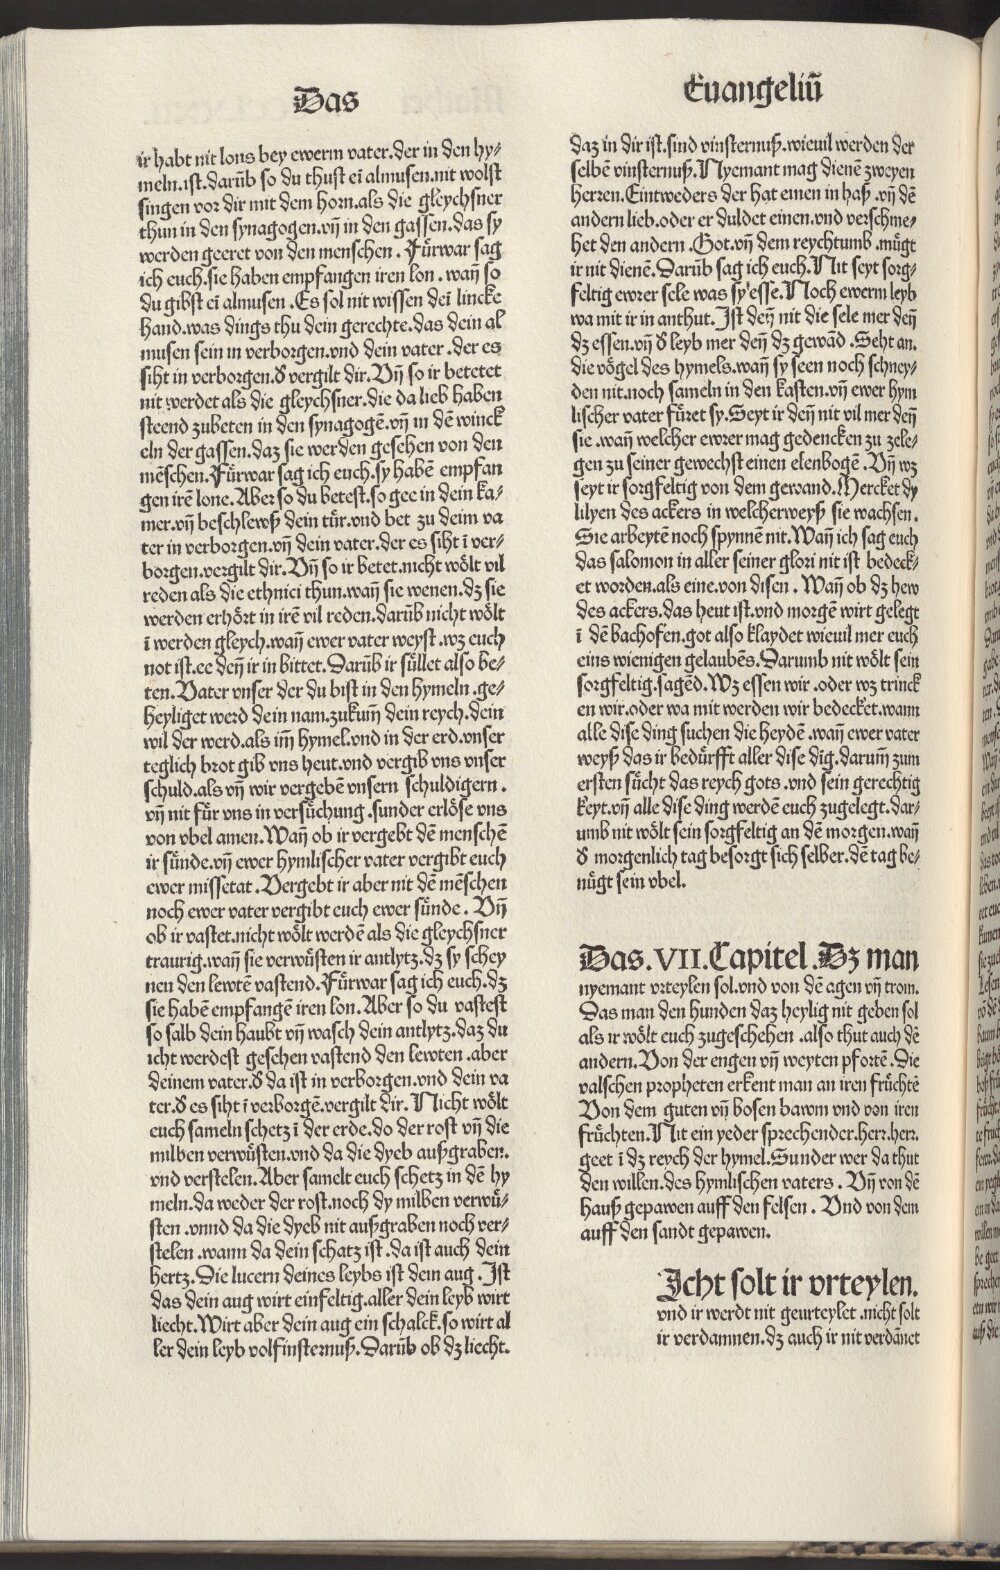 Das
Euangeliū
ir habt nit lons bey ewerm vater.der in den hy⸗
meln.ist.darūb so du thust eī almusen.nit wolst
singen vor dir mit dem horn.als die gleychsner
thun in den synagogen.vn̄ in den gassen.das sy
werden geeret von den menschen . Fürwar sag
ich euch.sie haben empfangen iren lon . wan̄ so
du gibst eī almusen .Es sol nit wissen deī lincke
hand.was dings thu dein gerechte.das dein al
musen sein in verborgen.vnd dein vater .der es
siht in verborgen.d̕ vergilt dir.Vn̄ so ir betetet
nit werdet als die gleychsner.die da lieb haben
steend zubeten in den synagogē.vn̄ in dē winck
eln der gassen.daz sie werden gesehen von den
mēschen.Fürwar sag ich euch.sy habē empfan
gen irē lone.Aber so du betest.so gee in dein ka⸗
mer.vn̄ beschlewß dein tür.vnd bet zu deim va
ter in verborgen.vn̄ dein vater.der es siht ī ver⸗
borgen.vergilt dir.Vn̄ so ir betet.nicht wölt vil
reden als die ethnici thun.wan̄ sie wenen.dz sie
werden erhört in irē vil reden.darūb nicht wölt
ī werden gleych.wan̄ ewer vater weyst.wz euch
not ist.ee den̄ ir in bittet.Darūb ir süllet also be⸗
ten.Vater vnser der du bist in den hymeln .ge⸗
heyliget werd dein nam.zukum̄ dein reych.dein
wil der werd.als im̄ hymel.vnd in der erd.vnser
teglich brot gib vns heut.vnd vergib vns vnser
schuld.als vn̄ wir vergebē vnsern schuldigern .
vn̄ nit für vns in versüchung .sunder erlöse vns
von vbel amen.Wan̄ ob ir vergebt dē menschē
ir sünde.vn̄ ewer hymlischer vater vergibt euch
ewer missetat .Vergebt ir aber nit dē mēschen
noch ewer vater vergibt euch ewer sünde . Vn̄
ob ir vastet.nicht wölt werdē als die gleychsner
traurig.wan̄ sie verwüsten ir antlytz.dz sy schey
nen den lewtē vastend.Fürwar sag ich euch.dz
sie habē empfangē iren lon.Aber so du vastest
so salb dein haubt vn̄ wasch dein antlytz.daz du
icht werdest gesehen vastend den lewten .aber
deinem vater.d̕ da ist in verborgen.vnd dein va
ter.d̕ es siht ī verborgē.vergilt dir. Nicht wölt
euch sameln schetz ī der erde.do der rost vn̄ die
milben verwüsten.vnd da die dyeb außgraben.
vnd verstelen.Aber samelt euch schetz in dē hy
meln.da weder der rost.noch dy milben verwü⸗
sten .vnnd da die dyeb nit außgraben noch ver⸗
stelen .wann da dein schatz ist .da ist auch dein
hertz.Die lucern deines leybs ist dein aug .Ist
das dein aug wirt einfeltig.aller dein leyb wirt
liecht.Wirt aber dein aug ein schalck.so wirt al
ler dein leyb volfinsternuß.Darūb ob dz liecht.
daz in dir ist.sind vinsternuß.wieuil werden der
selbē vinsternuß.Nyemant mag dienē zweyen
herren.Eintweders der hat einen in haß .vn̄ dē
andern lieb.oder er duldet einen.vnd verschme⸗
het den andern .Got.vn̄ dem reychtumb .mügt
ir nit dienē.Darūb sag ich euch.Nit seyt sorg⸗
feltig ewrer sele was sy esse.Noch ewerm leyb
wa mit ir in anthut.Ist den̄ nit die sele mer den̄
dz essen.vn̄ d̕ leyb mer den̄ dz gewād .Seht an.
die vögel des hymels.wan̄ sy seen noch schney⸗
den nit.noch sameln in den kasten.vn̄ ewer hym
lischer vater füret sy.Seyt ir den̄ nit vil mer den̄
sie .wan̄ welcher ewrer mag gedencken zu zele⸗
gen zu seiner gewechst einen elenbogē .Vn̄ wz
seyt ir sorgfeltig von dem gewand.Mercket dy
lilyen des ackers in welcherweyß sie wachsen .
Sie arbeytē noch spynnē nit.Wan̄ ich sag euch
das salomon in aller seiner glori nit ist bedeck⸗
et worden.als eine.von disen . Wan̄ ob dz hew
des ackers.das heut ist.vnd morgē wirt gelegt
ī dē bachofen.got also klaydet wieuil mer euch
eins wienigen gelaubēs.Darumb nit wölt sein
sorgfeltig.sagēd.Wz essen wir .oder wz trinck
en wir.oder wa mit werden wir bedecket.wann
alle dise ding suchen die heydē .wan̄ ewer vater
weyß das ir bedürfft aller dise dīg.darum̄ zum
ersten sücht das reych gots .vnd sein gerechtig
keyt.vn̄ alle dise ding werdē euch zugelegt.dar⸗
umb nit wölt sein sorgfeltig an dē morgen.wan̄
d̕ morgenlich tag besorgt sich selber.dē tag be⸗
nügt sein vbel.
Das.VII.Capitel.Dz man
nyemant vrteylen sol.vnd von dē agen vn̄ trom.
Das man den hunden daz heylig nit geben sol
als ir wölt euch zugeschehen .also thut auch dē
andern.Von der engen vn̄ weyten pfortē .Die
valschen propheten erkent man an iren früchtē
Von dem guten vn̄ bosen bawm vnd von iren
früchten.Nit ein yeder sprechender.herr.herr.
geet ī dz reych der hymel.Sunder wer da thut
den willen.des hymlischen vaters . Vn̄ von dē
hauß gepawen auff den felsen . Vnd von dem
auff den sandt gepawen.
Icht solt ir vrteylen.
vnd ir werdt nit geurteylet .nicht solt
ir verdamnen.dz auch ir nit verdānet